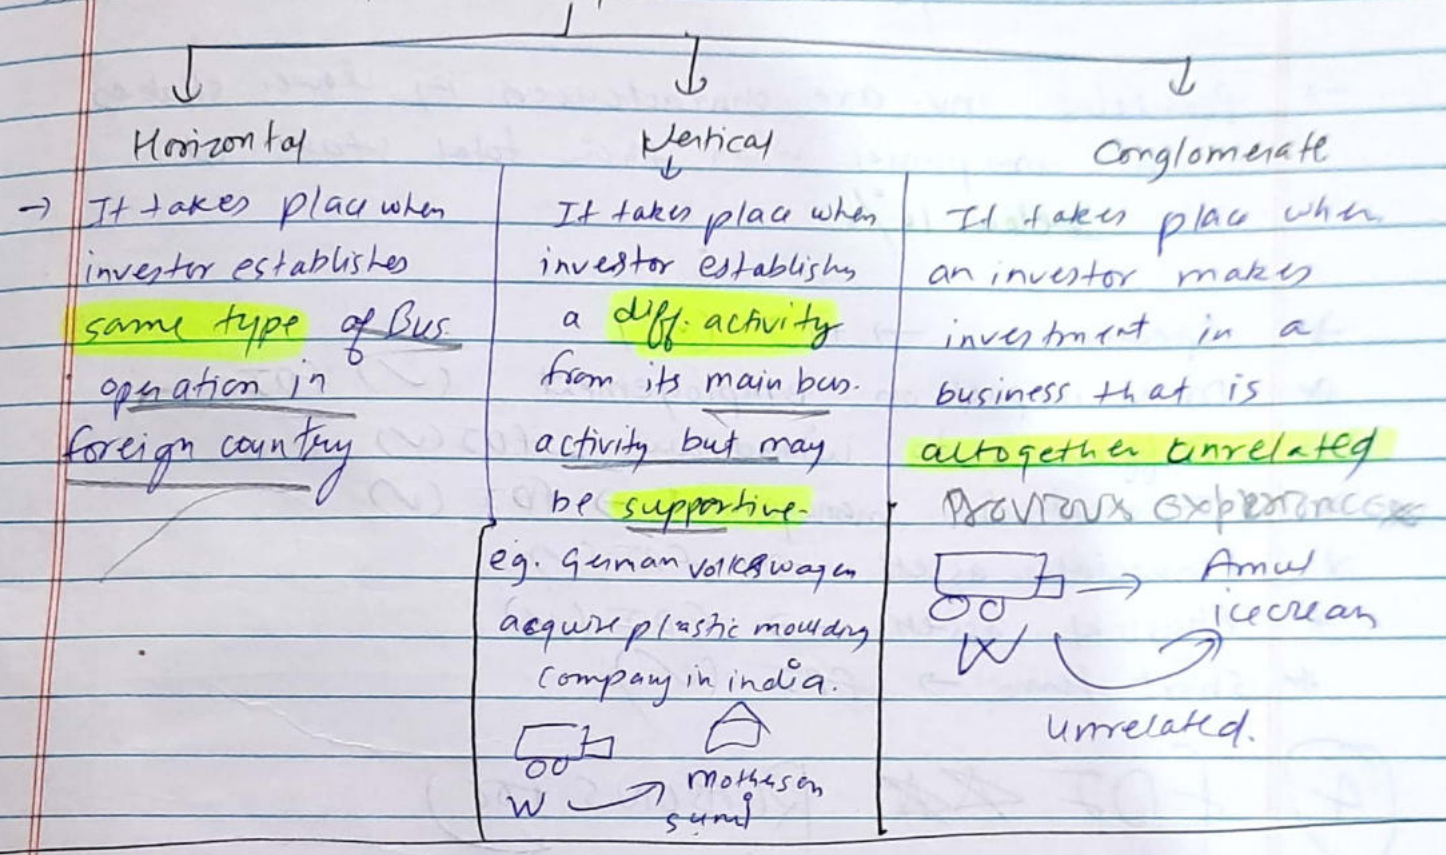 Horizontal
Vertical
Conglomerate
→ It takes place when
investor establishes
same type of Bus.
operation in
foreign country
It takes place when
investor establishes
a diff. activity
from its main bus.
activity but may
be supportive.
eg. German volkswagen
acquire plastic moulding
company in india.
W
Motherson
sumi
It takes place when
an investor makes
investment in a
business that is
altogether unrelated
Previous experience
Amul
icecream
W
unrelated.